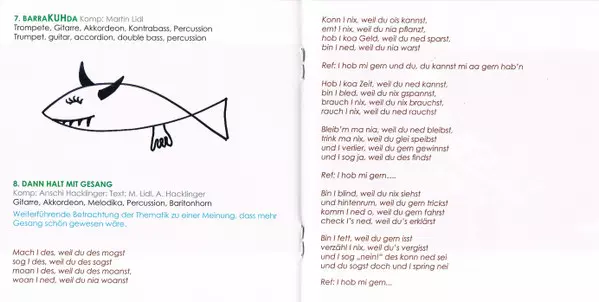 7. BARRAKUHDA Komp: Martin Lidl
Trompete, Gitarre, Akkordeon, Kontrabass, Percussion
Trumpet, guitar, accordion, double bass, percussion
8. DANN HALT MIT GESANG
Komp: Anschi Hacklinger; Text: M. Lidl, A. Hacklinger
Gitarre, Akkordeon, Melodika, Percussion, Baritonhorn
Weiterführende Betrachtung der Thematik zu einer Meinung, dass mehr
Gesang schön gewesen wäre.
Mach I des, weil du des mogst
sog I des, weil du des sogst
moan I des, weil du des moanst,
woan I ned, weil du nia woanst
Konn I nix, weil du ois kannst,
ernt I nix, weil du nia pflanzt,
hob I koa Geld, weil du ned sparst,
bin I ned, weil du nia warst
Ref: I hob mi gern und du, du kannst mi aa gern hab'n
Hob I koa Zeit, weil du ned kannst,
bin I bled, weil du nix gspannst,
brauch I nix, weil du nix brauchst,
rauch I nix, weil du ned rauchst
Bleib'm ma nia, weil du ned bleibst,
trink ma nix, weil du glei speibst
und I verlier, weil du gern gewinnst
und I sog ja, weil du des findst
Ref: I hob mi gern....
Bin I blind, weil du nix siehst
und hintenrum, weil du gern trickst
komm I ned o, weil du gern fahrst
check I's ned, weil du's erklärst
Bin I fett, weil du gern isst
verzähl I nix, weil du's vergisst
und I sog „nein!" des konn ned sei
und du sogst doch und I spring nei
Ref: I hob mi gern...